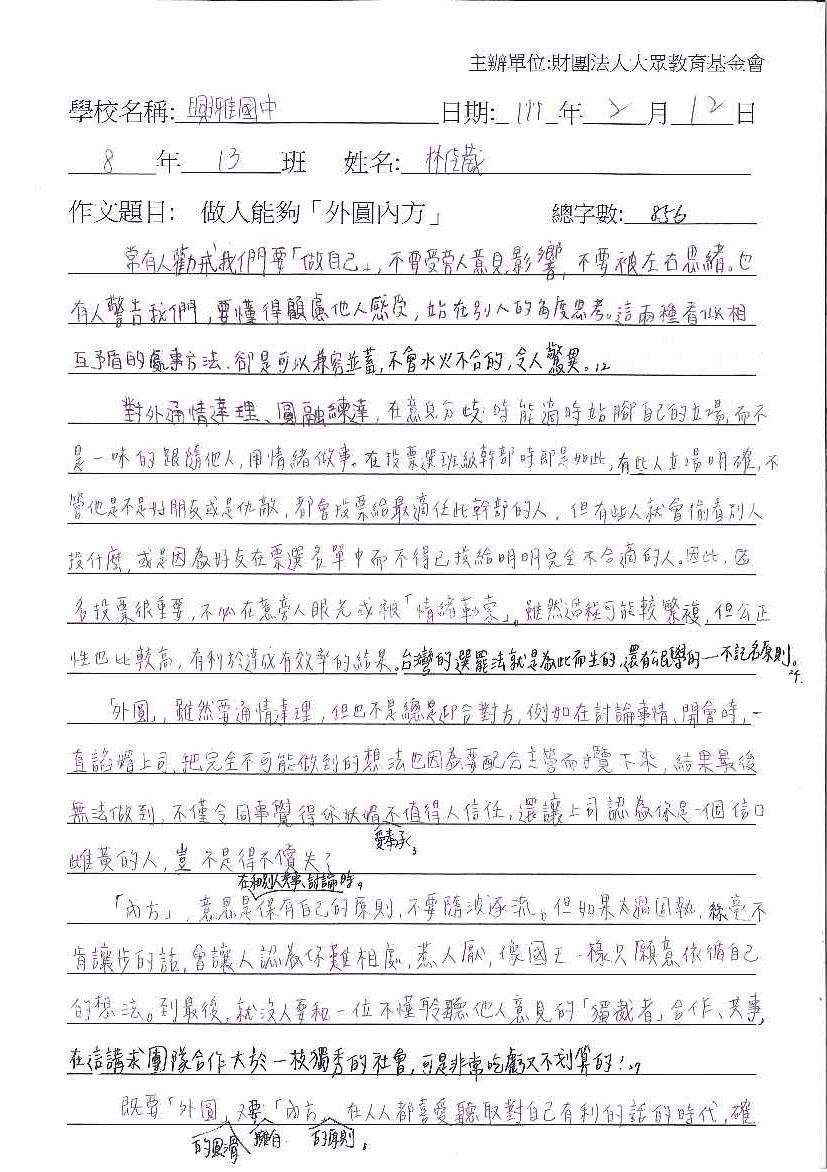 主辦單位:財團法人大眾教育基金會
學校名稱: 興雅國中 日期: 111 年 2 月 12 日
8 年 13 班 姓名: 林佳葳
作文題目: 做人能夠「外圓內方」 總字數: 856
常有人勸戒我們要「做自己」,不要受旁人意見影響,不要被左右思緒。也
有人警告我們,要懂得顧慮他人感受,站在別人的角度思考。這兩種看似相
互矛盾的處事方法,卻是可以兼容並蓄,不會水火不合的,令人驚異。12
對外通情達理、圓融練達,在意見分歧時能適時站腳自己的立場,而不
是一味的跟隨他人,用情緒做事。在投票選班級幹部時即是如此,有些人立場明確,不
管他是不是好朋友或是仇敵,都會投票給最適任此幹部的人,但有些人就會偷看別人
投什麼,或是因為好友在票選名單中而不得已投給明明完全不合適的人。因此,匿
名投票很重要,不必在意旁人眼光或被「情緒勒索」。雖然過程可能較繁複,但公正
性也比較高,有利於達成有效率的結果。台灣的選罷法就是為此而生的,還有公民學的一不記名原則。
24.
「外圓」,雖然要通情達理,但也不是總是迎合對方,例如在討論事情、開會時,一
直諂媚上司,把完全不可能做到的想法也因為要配合主管而攬下來,結果最後
無法做到,不僅令同事覺得你妖媚不值得人信任,還讓上司認為你是一個信口
愛奉承3
雌黃的人,豈不是得不償失了
在和別人共事、討論時。
「內方」,意思是保有自己的原則,不要隨波逐流。但如果太過固執,絲毫不
肯讓步的話,會讓人認為你難相處,惹人厭,像國王一樣只願意依循自己
的想法。到最後,就沒人要和一位不懂聆聽他人意見的「獨裁者」合作、共事,
在這講求團隊合作大於一枝獨秀的社會,可是非常吃虧又不划算的!27
既要「外圓」又要「內方」,在人人都喜愛聽取對自己有利的話的時代,確
的圓滑 擁有 的原則8